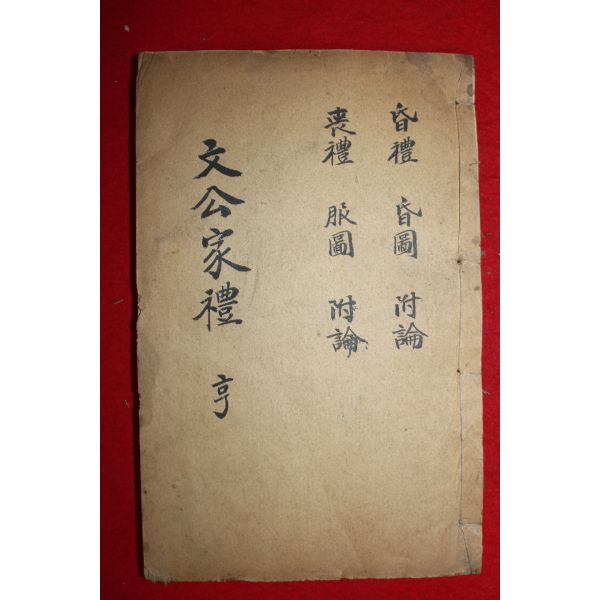 昏禮 昏圖 附論
喪禮 服圖 附論
文公家禮 亨